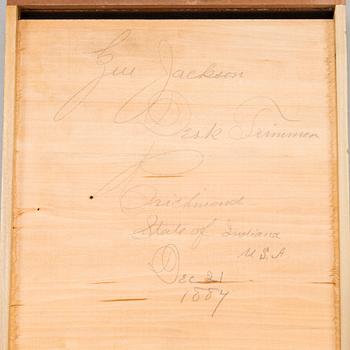 Gus Jackson
Desk Trimmer
Richmond
State of Indiana
U.S.A
Dec 21
1887